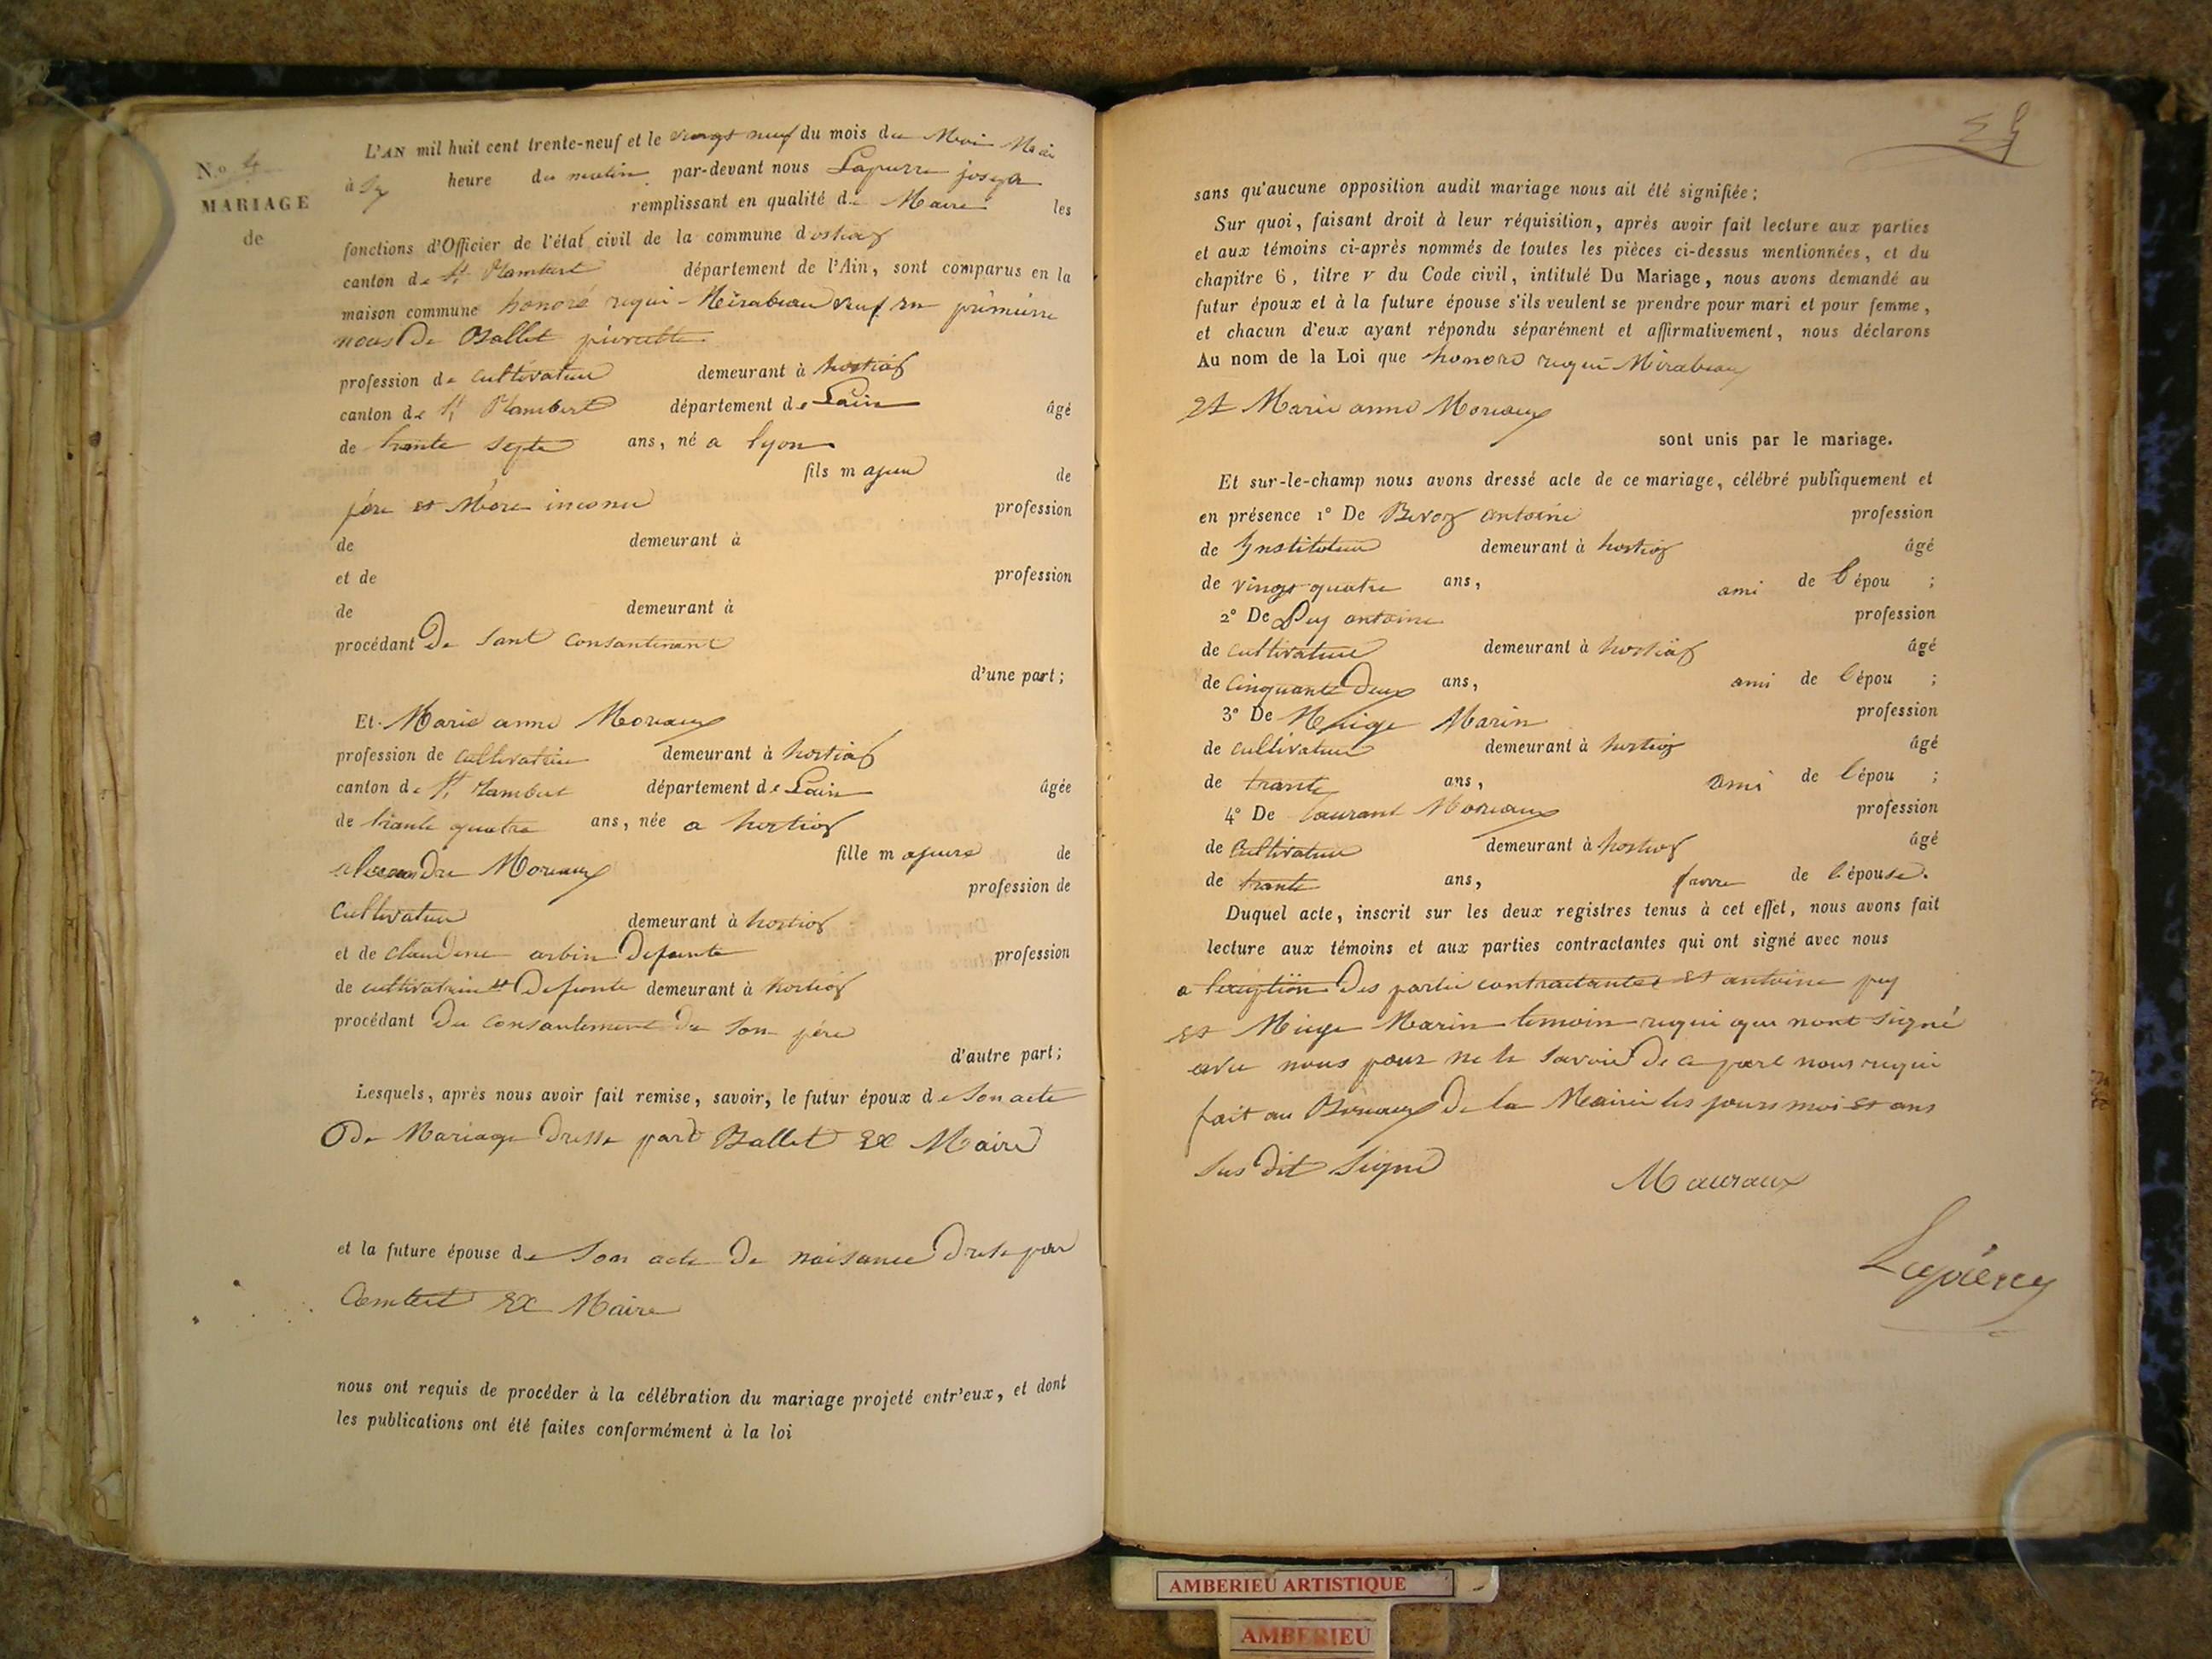 N.o 4
MARIAGE
de
L'AN mil huit cent trente-neuf et le vingt neuf du mois du Moi Mai
à six heure du matin par-devant nous Lapierre joseph
remplissant en qualité de Maire les
fonctions d'Officier de l'état civil de la commune d'ostiaz
canton de St Rambert département de l'Ain, sont comparus en la
maison commune honoré requi-Mirabeau veuf en première
noces De Ballet pierrette
profession de cultivateur demeurant à hostiaz
canton de St Rambert département de Lain âgé
de trante septe ans, né a lyon
fils majeur de
père et Mère inconu profession
de demeurant à
et de profession
de demeurant à
procédant De sant consantement
d'une part;
Et Marie anne Moreaux
profession de cultivatrice demeurant à hostiaz
canton de St Rambert département de Lain âgée
de trante quatre ans, née a hostiaz
fille majeure de
alexandre Moreaux profession de
cultivateur demeurant à hostiaz
et de claudine arbin Defunte profession
de cultivatrice Defunte demeurant à hostiaz
procédant du consantement de son père
d'autre part;
Lesquels, après nous avoir fait remise, savoir, le futur époux de son acte
De Mariage dresse part Ballet Ex Maire
et la future épouse de son acte De naisance Dresse par
Ex Maire
nous ont requis de procéder à la célébration du mariage projeté entr'eux, et dont
les publications ont été faites conformément à la loi
sans qu'aucune opposition audit mariage nous ait été signifiée;
Sur quoi, faisant droit à leur réquisition, après avoir fait lecture aux parties
et aux témoins ci-après nommés de toutes les pièces ci-dessus mentionnées, et du
chapitre 6, titre v du Code civil, intitulé Du Mariage, nous avons demandé au
futur époux et à la future épouse s'ils veulent se prendre pour mari et pour femme,
et chacun d'eux ayant répondu séparément et affirmativement, nous déclarons
Au nom de la Loi que honoré requi Mirabeau
et Marie anne Moreaux
sont unis par le mariage.
Et sur-le-champ nous avons dressé acte de ce mariage, célébré publiquement et
en présence 1° De Bevoz antoine profession
de Instituteur demeurant à hostiaz âgé
de vingt quatre ans, ami de l'épou ;
2° De Puy antoine profession
de cultivateur demeurant à hostiaz âgé
de cinquante Deux ans, ami de l'épou ;
3° De Miege Marin profession
de cultivateur demeurant à hostiaz âgé
de trante ans, ami de l'épou ;
4° De laurant Moreaux profession
de cultivateur demeurant à hostiaz âgé
de trante ans, frere de l'épouse.
Duquel acte, inscrit sur les deux registres tenus à cet effet, nous avons fait
lecture aux témoins et aux parties contractantes qui ont signé avec nous
a lexeption Des partie contractantes et antoine puy
et Miege Marin temoin requi que nont signé
avec nous pour ne le savoir de ce part nous requi
fait au Bureaux De la Mairie les jours moi et ans
sus dit signé
Mauraux
Lapierre
AMBERIEU ARTISTIQUE
AMBERIEU